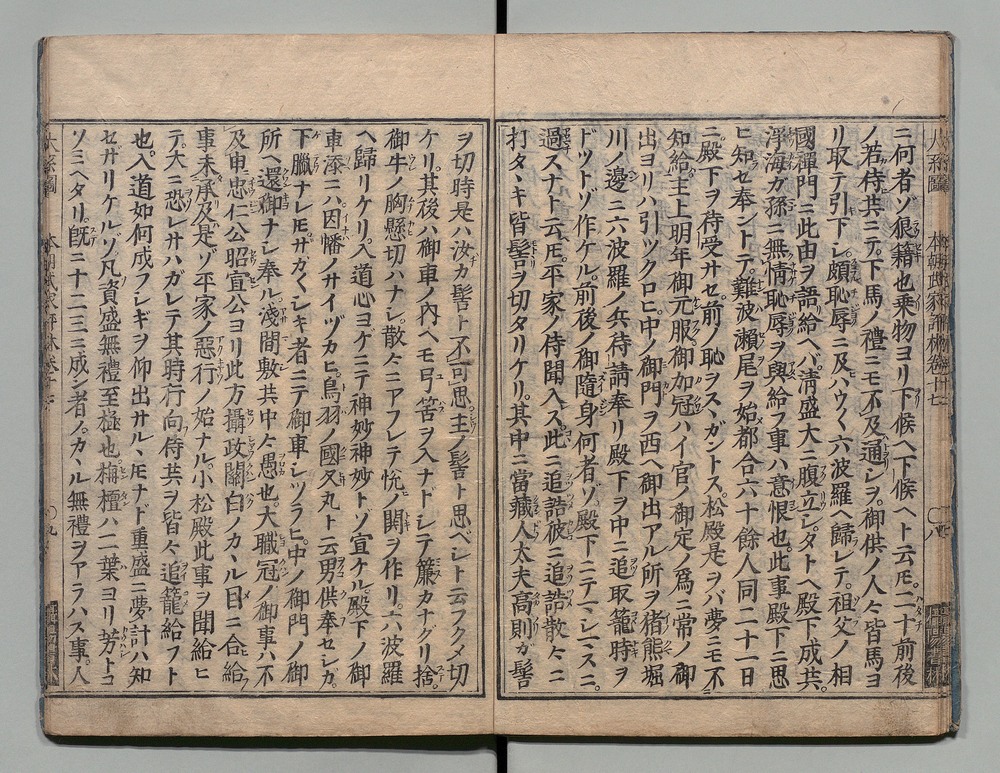 ニ何者ゾ狼籍也乗物ヨリ下候ヘ下候ヘト云𪜈。二十前後
ノ若侍共ニテ。下馬ノ禮ニモ不及通シヲ。御供ノ人々皆馬ヨ
リ取テ引下シ。頗恥辱ニ及ハウ〱六波羅ヘ歸レテ。祖父ノ相
國禪門ニ此由ヲ語給ヘバ。清盛大ニ腹立シ。ダトヘ殿下成共。
浄海ガ孫ニ無情恥辱ヲ與給フ事ハ意恨也。此事殿下ニ思
ヒ知セ奉ントテ。難波瀬尾ヲ始都合六十餘人同二十一日
ニ。殿下ヲ待受サセ。前ノ恥ヲスヽガントス。松殿是ヲバ夢ニモ不
知給。主上明年御元服御加冠ハイ官ノ御定ノ爲ニ常ノ御
出ヨリハ引ツクロヒ。中ノ御門ヲ西ヘ御出アル所ヲ猪熊堀
川ノ邊ニ六波羅ノ兵待請奉リ殿下ヲ中ニ追取籠時ヲ
ドツトヅ作ケル。前後ノ御隨身何者ソ殿下ニテマシマスニ。
過スナト云𪜈。平家ノ侍聞ヘス。此ニ追詰彼ニ追詰散々ニ
打タヽキ皆髻ヲ切タリケリ。其中ニ當藏人太夫高則ガ髻
ヲ切時是ハ汝カ髻ト不可思主ノ髻ト思ベシト云フクメ切
ケリ。其後ハ御車ノ内ヘモ弓筈ヲ入ナドシテ簾カナグリ捨。
御牛ノ胸懸切ハナシ。散々ニアフレテ悦ノ鬨ヲ作リ。六波羅
ヘ歸リケリ。入道心ヨゲニテ神妙神妙トゾ宣ケル。殿下ノ御
車添ニハ因幡ノサイヅカヒ。鳥羽ノ國久丸ト云男供奉セシガ。
下臈ナレ𪜈サカ〱シキ者ニテ御車シツラヒ。中ノ御門ノ御
所ヘ還御ナシ奉ル。淺間敷共中々愚也。大職冠ノ御事ハ不
及申忠仁公昭宣公ヨリ此方攝政關白ノカヽル目ニ合給
事未承及。是ゾ平家ノ惡行ノ始ナル。小松殿此事ヲ聞給ヒ
テ。大ニ恐レサハガレテ其時行向侍共ヲ皆々追籠給フト
也。入道如何成フシギヲ仰出サルヽ𪜈ナド重盛ニ夢計ハ知
セザリケルソ凡資盛無禮至極也栴檀ハ二葉ヨリ芳トコ
ソミヘタリ。既ニ十二三ニ成シ者ノ。カヽル無禮ヲアラハス事。人